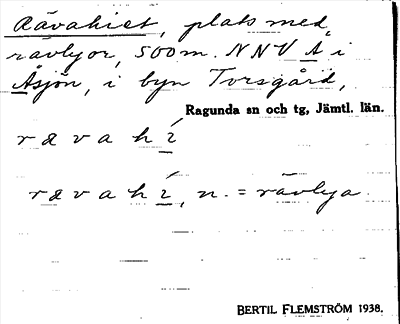 Rävahiet, plats med
rävlyor, 500 m. NNV Å i
Åsjön, i byn Torsgård,
Ragunda sn och tg, Jämtl. län.
r æ v a h í
r æ v a h í, n. = rävlya.
BERTIL FLEMSTRÖM 1938.